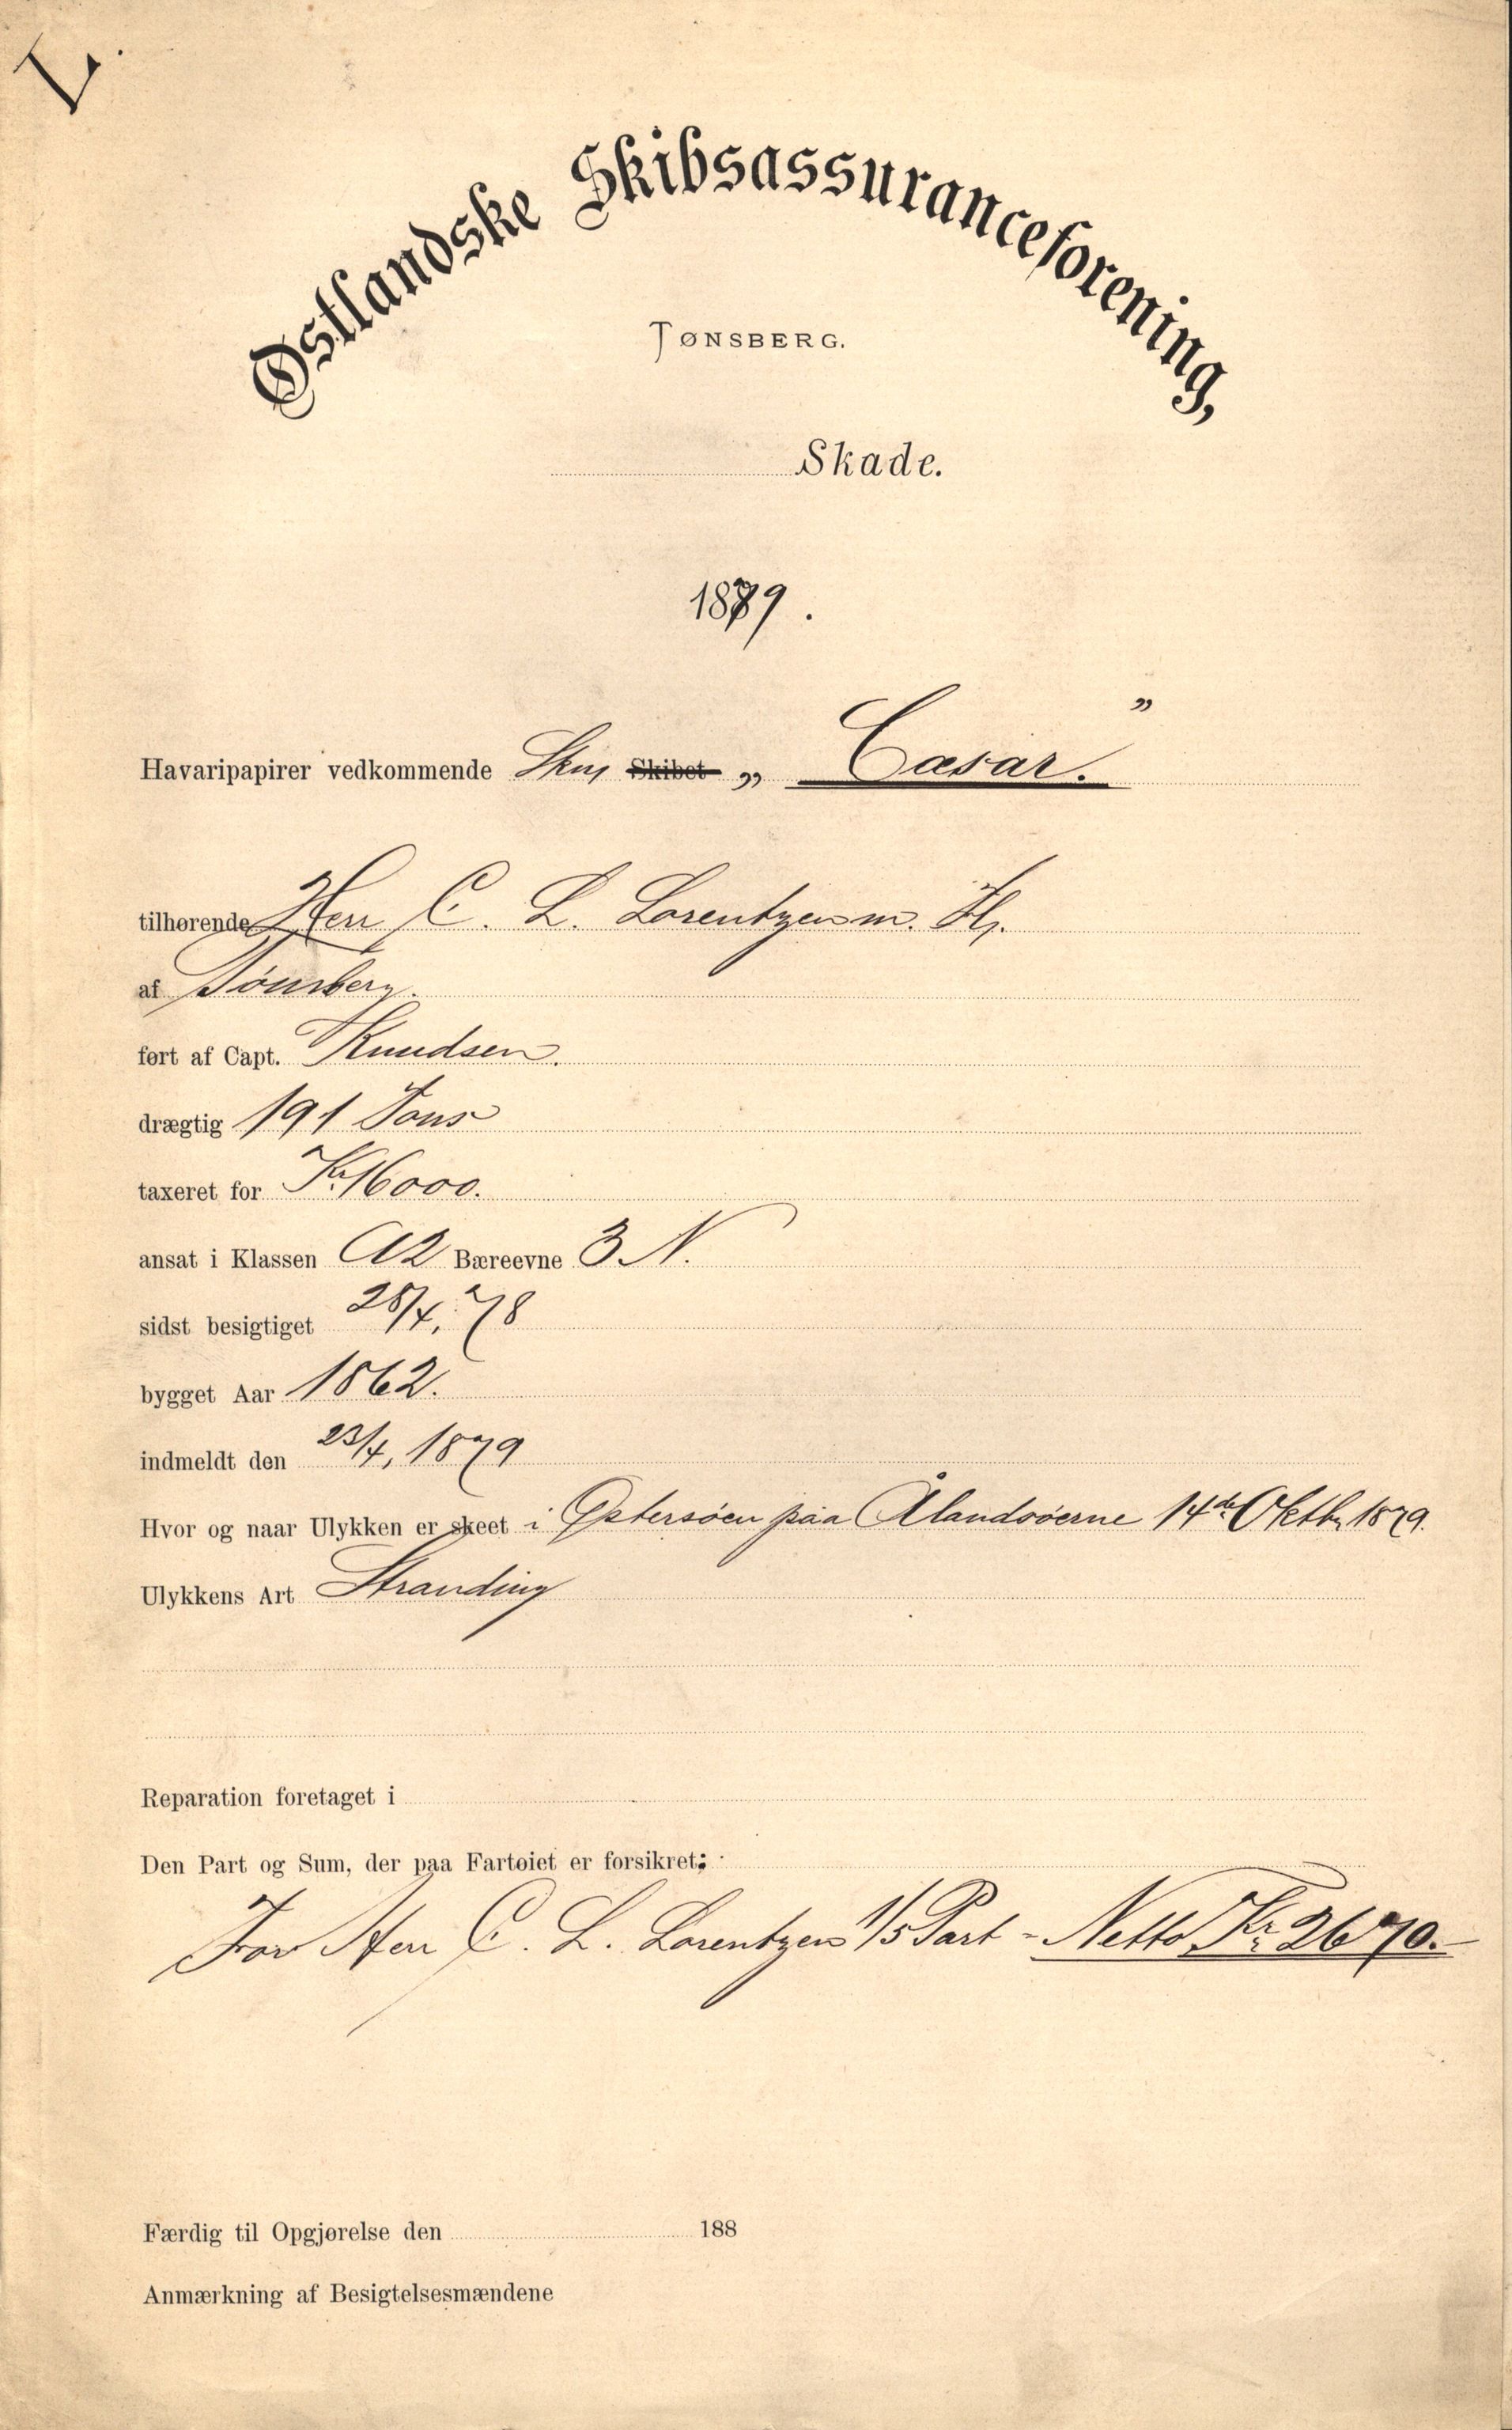 L.
Østlandske Skibsassuranceforening,
TØNSBERG.
Skade.
1879.
Havaripapirer vedkommende Skip Skibet „Cæsar."
tilhørende Herr C. L. Lorentzen m. Fl.
af Tønsberg.
ført af Capt. Knudsen.
drægtig 191 Tons
taxeret for Kr. 16000.
ansat i Klassen A2 Bæreevne 3 N.
sidst besigtiget 28/4, 78
bygget Aar 1862.
indmeldt den 23/4, 1879
Hvor og naar Ulykken er skeet i Østersøen paa Ålandsøerne 14de Oktbr 1879.
Ulykkens Art Stranding
Reparation foretaget i
Den Part og Sum, der paa Fartøiet er forsikret:
For Herr C. L. Lorentzen 1/5 Part - Netto Kr. 2670.-
Færdig til Opgjørelse den 188
Anmærkning af Besigtelsesmændene